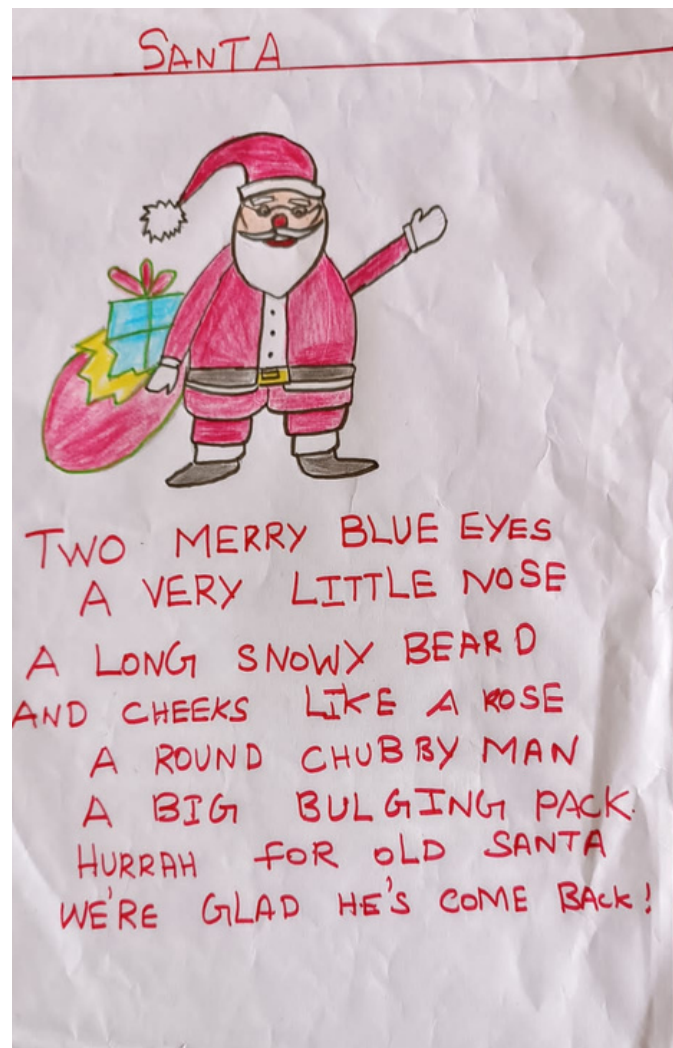 SANTA
TWO MERRY BLUE EYES
A VERY LITTLE NOSE
A LONG SNOWY BEARD
AND CHEEKS LIKE A ROSE
A ROUND CHUBBY MAN
A BIG BULGING PACK.
HURRAH FOR OLD SANTA
WE'RE GLAD HE'S COME BACK!